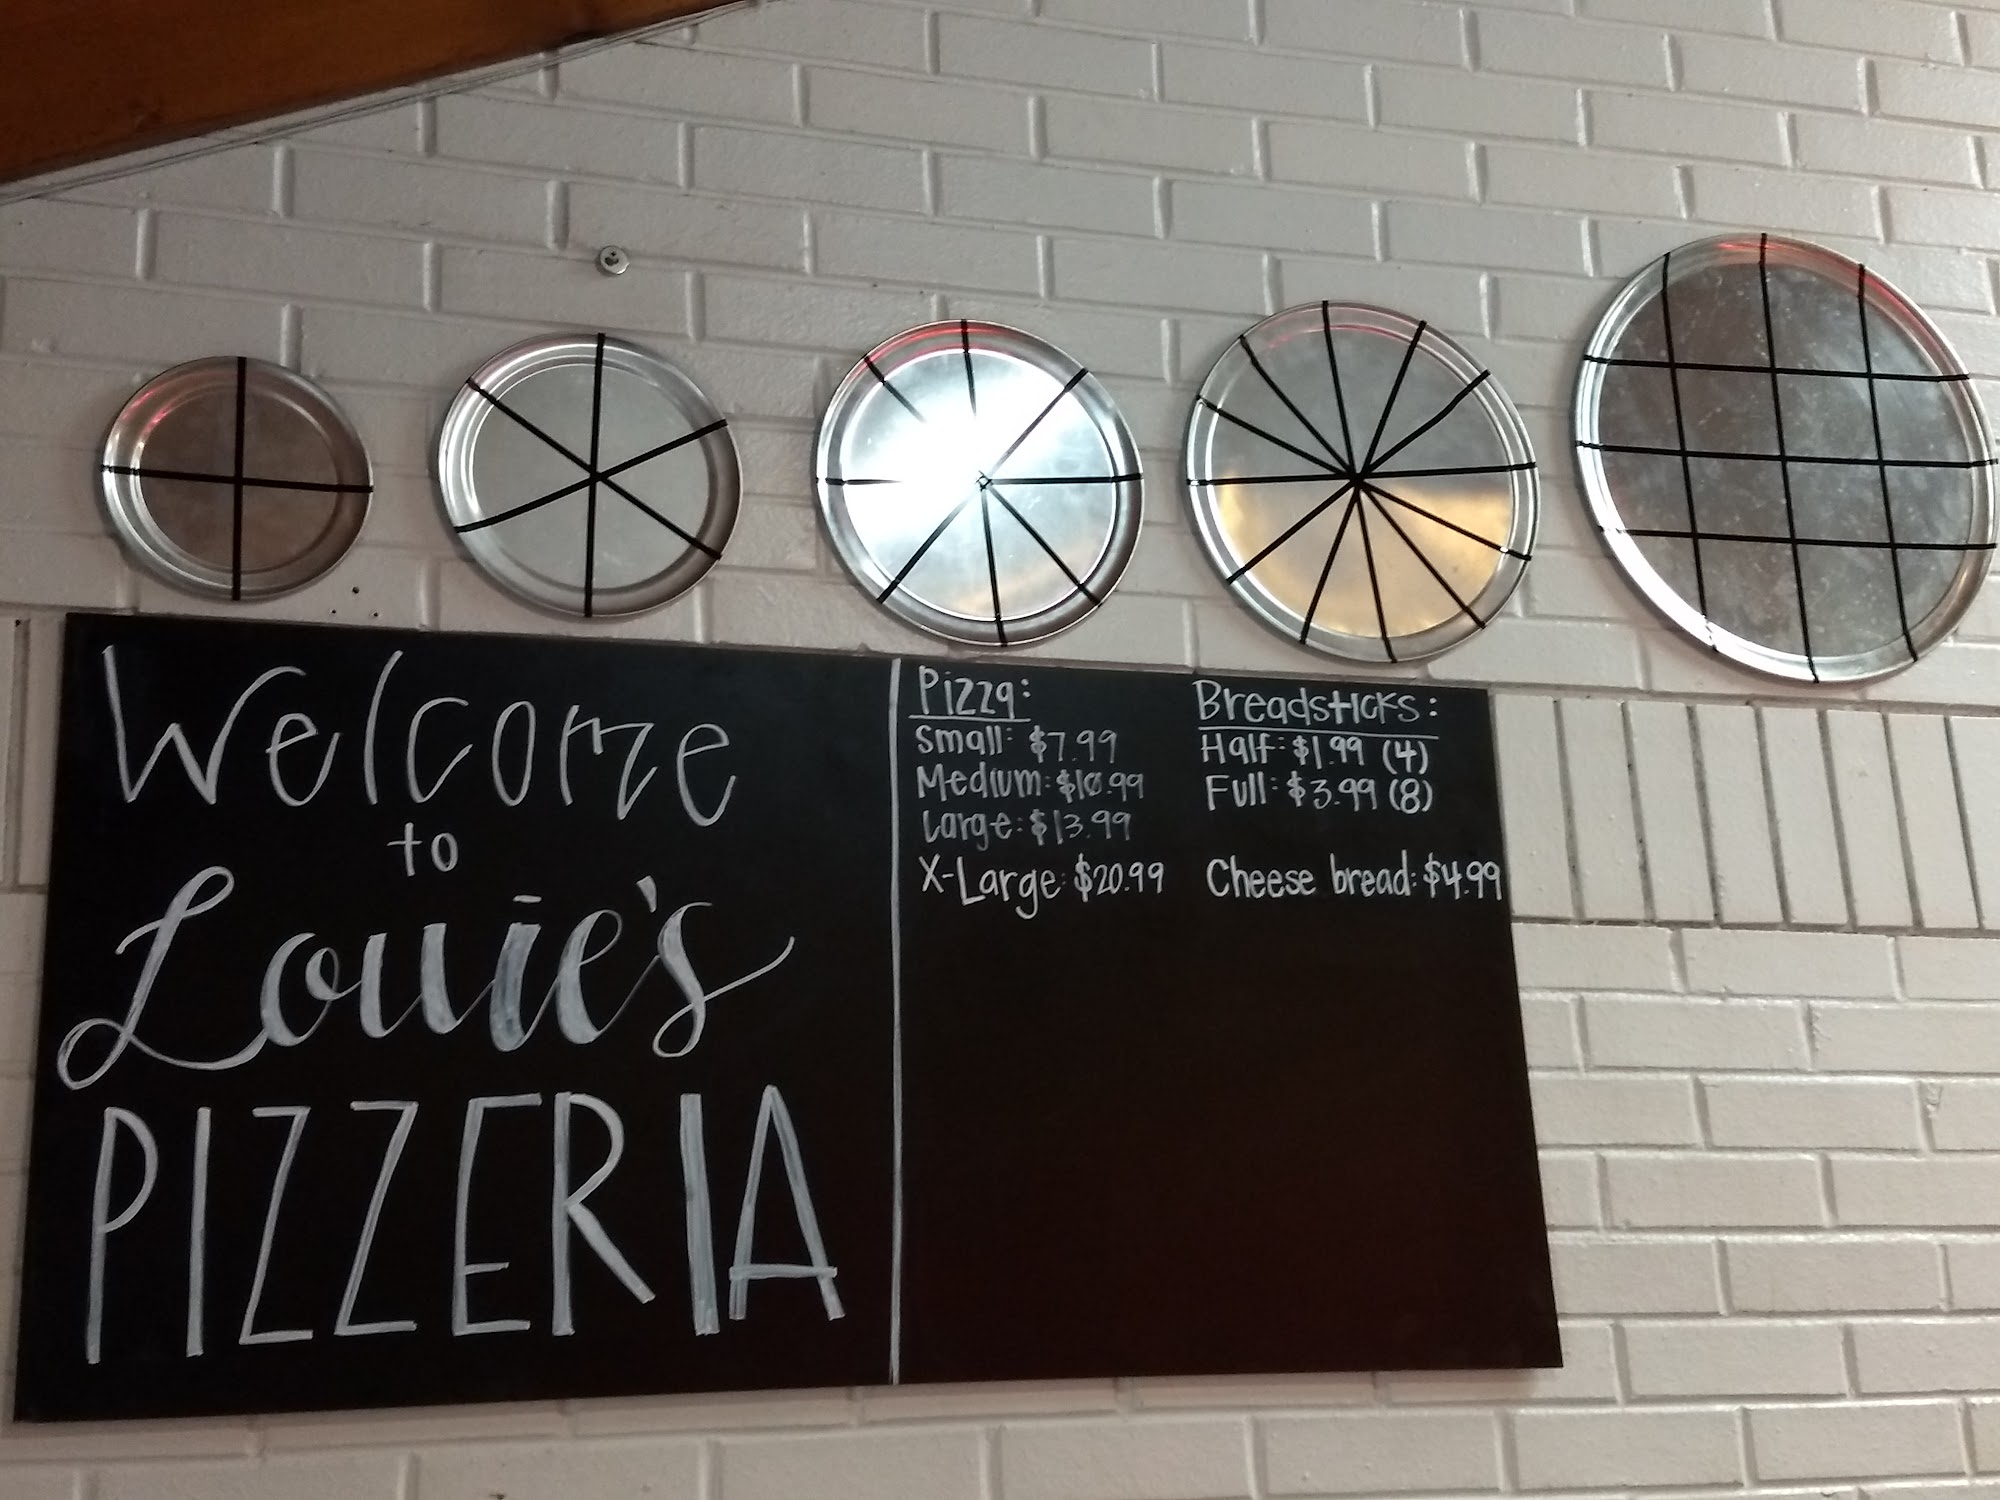 Welcome
to
Louie's
PIZZERIA
Pizza:
Small: $7.99
Medium: $10.99
Large: $13.99
X-Large: $20.99
Breadsticks:
Half: $1.99 (4)
Full: $3.99 (8)
Cheese bread: $4.99